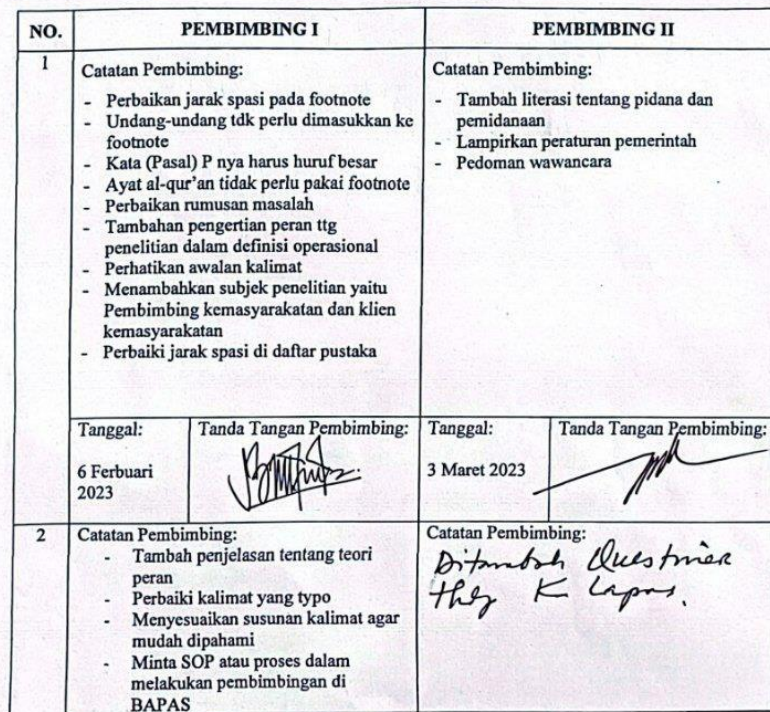 NO.
PEMBIMBING I
PEMBIMBING II
1
Catatan Pembimbing:
- Perbaikan jarak spasi pada footnote
- Undang-undang tdk perlu dimasukkan ke
footnote
- Kata (Pasal) P nya harus huruf besar
- Ayat al-qur'an tidak perlu pakai footnote
- Perbaikan rumusan masalah
- Tambahan pengertian peran ttg
penelitian dalam definisi operasional
- Perhatikan awalan kalimat
- Menambahkan subjek penelitian yaitu
Pembimbing kemasyarakatan dan klien
kemasyarakatan
- Perbaiki jarak spasi di daftar pustaka
Catatan Pembimbing:
- Tambah literasi tentang pidana dan
pemidanaan
- Lampirkan peraturan pemerintah
- Pedoman wawancara
Tanggal:
6 Ferbuari
2023
Tanda Tangan Pembimbing:
Tanggal:
3 Maret 2023
Tanda Tangan Pembimbing:
2
Catatan Pembimbing:
- Tambah penjelasan tentang teori
peran
- Perbaiki kalimat yang typo
- Menyesuaikan susunan kalimat agar
mudah dipahami
- Minta SOP atau proses dalam
melakukan pembimbingan di
BAPAS
Catatan Pembimbing:
Ditambah
K Lapas.